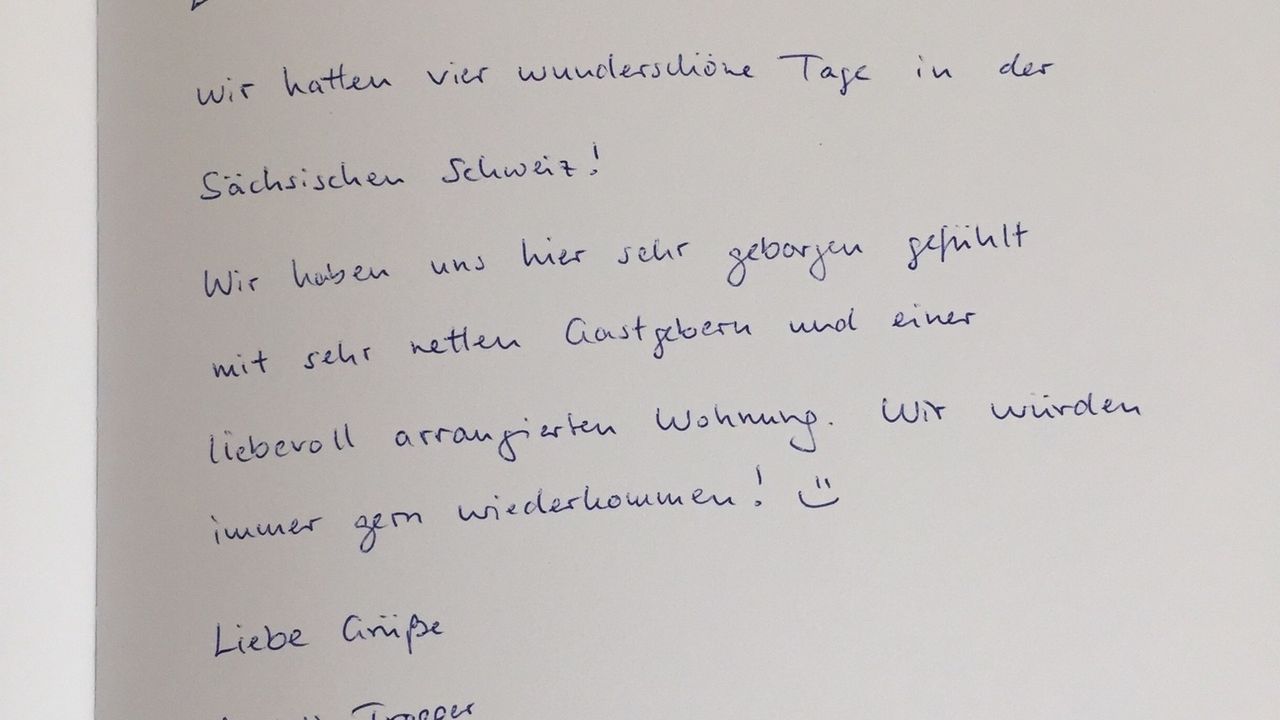 wir hatten vier wunderschöne Tage in der
Sächsischen Schweiz!
Wir haben uns hier sehr geborgen gefühlt
mit sehr netten Gastgebern und einer
liebevoll arrangierten Wohnung. Wir würden
immer gern wiederkommen! Ü
Liebe Grüße